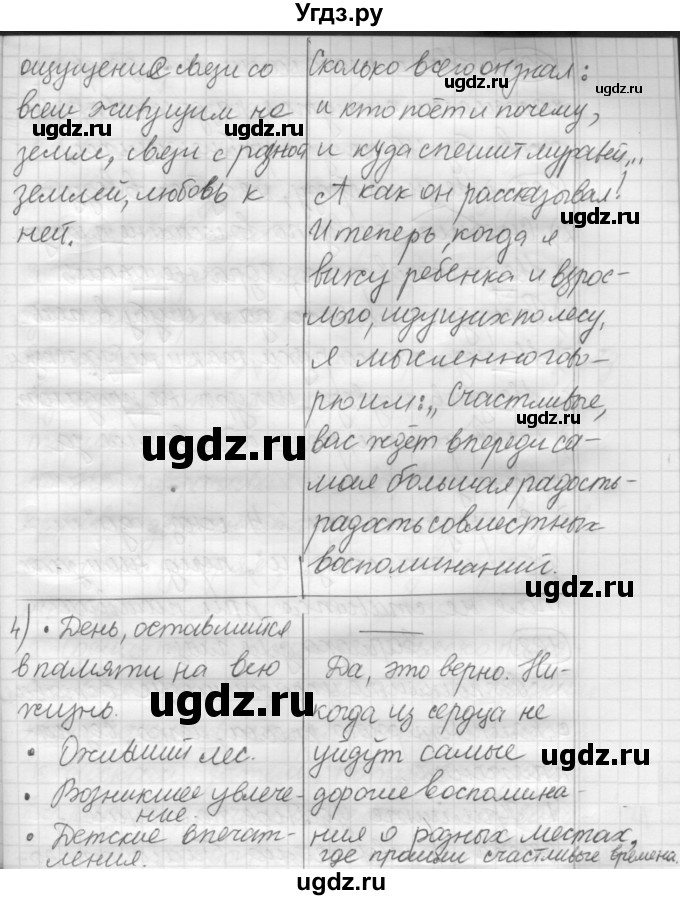 Угдз.ру
ощущения связи со
всем живущим на
земле, связи с родной
землей, любовь к
ней.
Сколько всего он знал:
и кто поёт и почему,
и куда спешит муравей...
А как он рассказывал!
И теперь, когда я
вижу ребенка и взрос-
лого, идущих по лесу,
я мысленно гово-
рю им: „Счастливые,
вас ждёт впереди са-
мая большая радость -
радость совместных
воспоминаний.
4) • День, оставшийся
в памяти на всю
жизнь.
• Оживший лес.
• Возникшее увлече-
ние.
• Детские впечат-
ления.
Да, это верно. Ни-
когда из сердца не
уйдут самые
дорогие воспомина-
ния о разных местах,
где прошли счастливые времена.
ugdz.ru
ugdz.ru
ugdz.ru
ugdz.ru
ugdz.ru
ugdz.ru
ugdz.ru
ugdz.ru
ugdz.ru
ugdz.ru
ugdz.ru
ugdz.ru
ugdz.ru
ugdz.ru